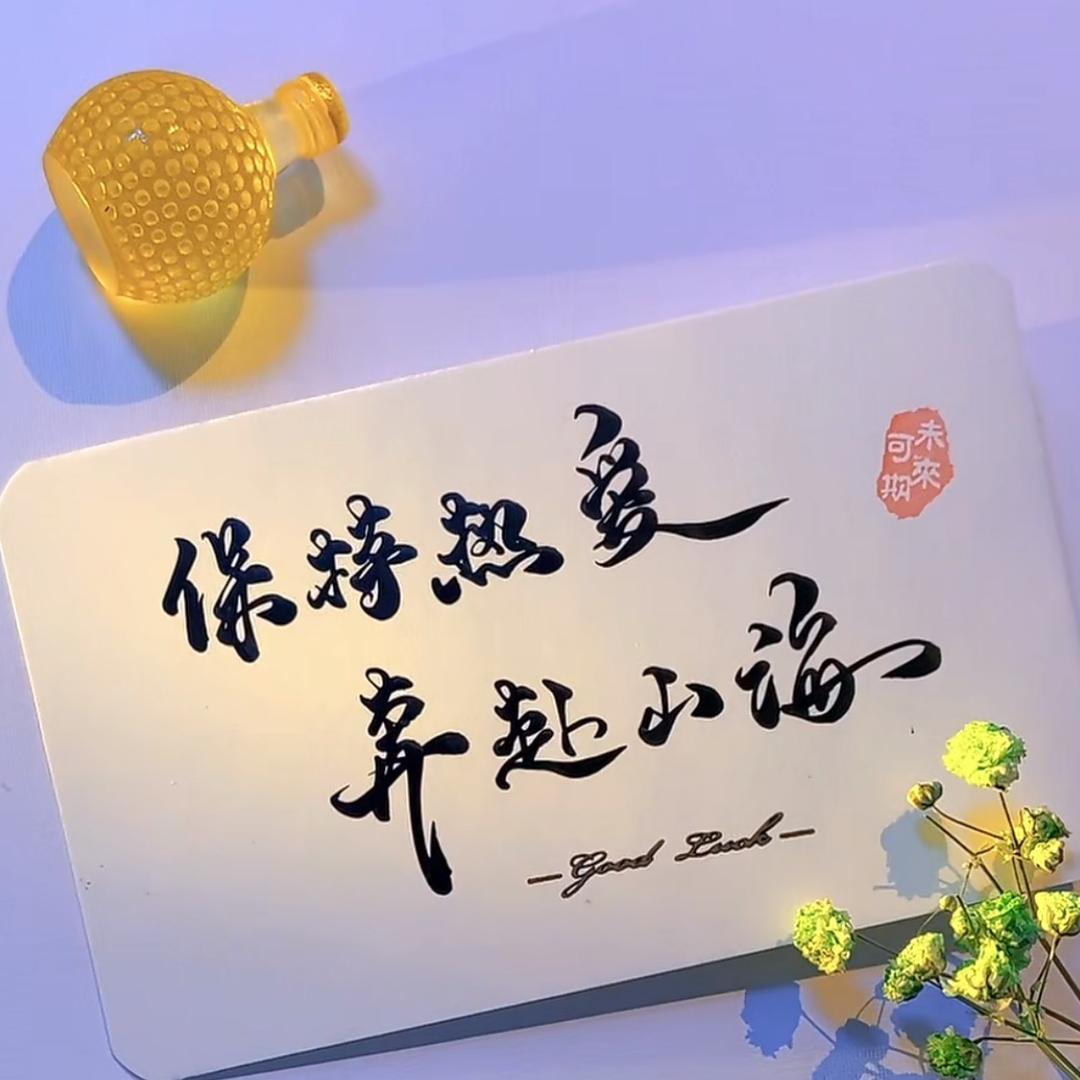 保持热爱
奔赴山海
—Good Luck—
未來
可期